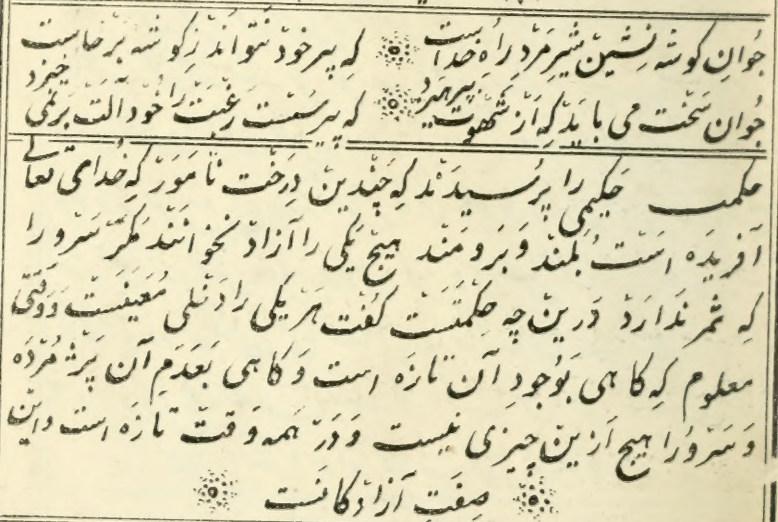 جُوانِ کوشه نِشین شیرِ مَردِ راهِ خداست کِه پیر خودْ نَتوانَد زِ کوشه بَرخاست
جُوان سَخت می بایَد کِه اَز شَهْوت بِپرهیزد که پیرِ سُست رَغبَت را خُود آلَت بَرنمی خیزد
حکمت حَکیمی را پُرسیدَند کِه چَندین دِرَختِ نامَوَر کِه خُدایِ تعالی
آفریدَه اَست بُلَند وَ بَرومَند هیچ یَکی را آزاد نخوانَنْد مَکَر سَرو را
کِه ثَمَر نَدارَد دَرین چِه حِکْمَتَست کُفت هَر یَکی را دَخلی مُعَیَنَست وَ وَقتی
معلوم کِه کاهی بَوُجودِ آن تازَه است وَ کاهی بَعَدَمِ آن پَژمُردَه
وَ سَرْو را هیچ اَزین چیزی نیست وَ دَر هَمه وَقت تازَه است واین
صِفَتِ آزادکانَست